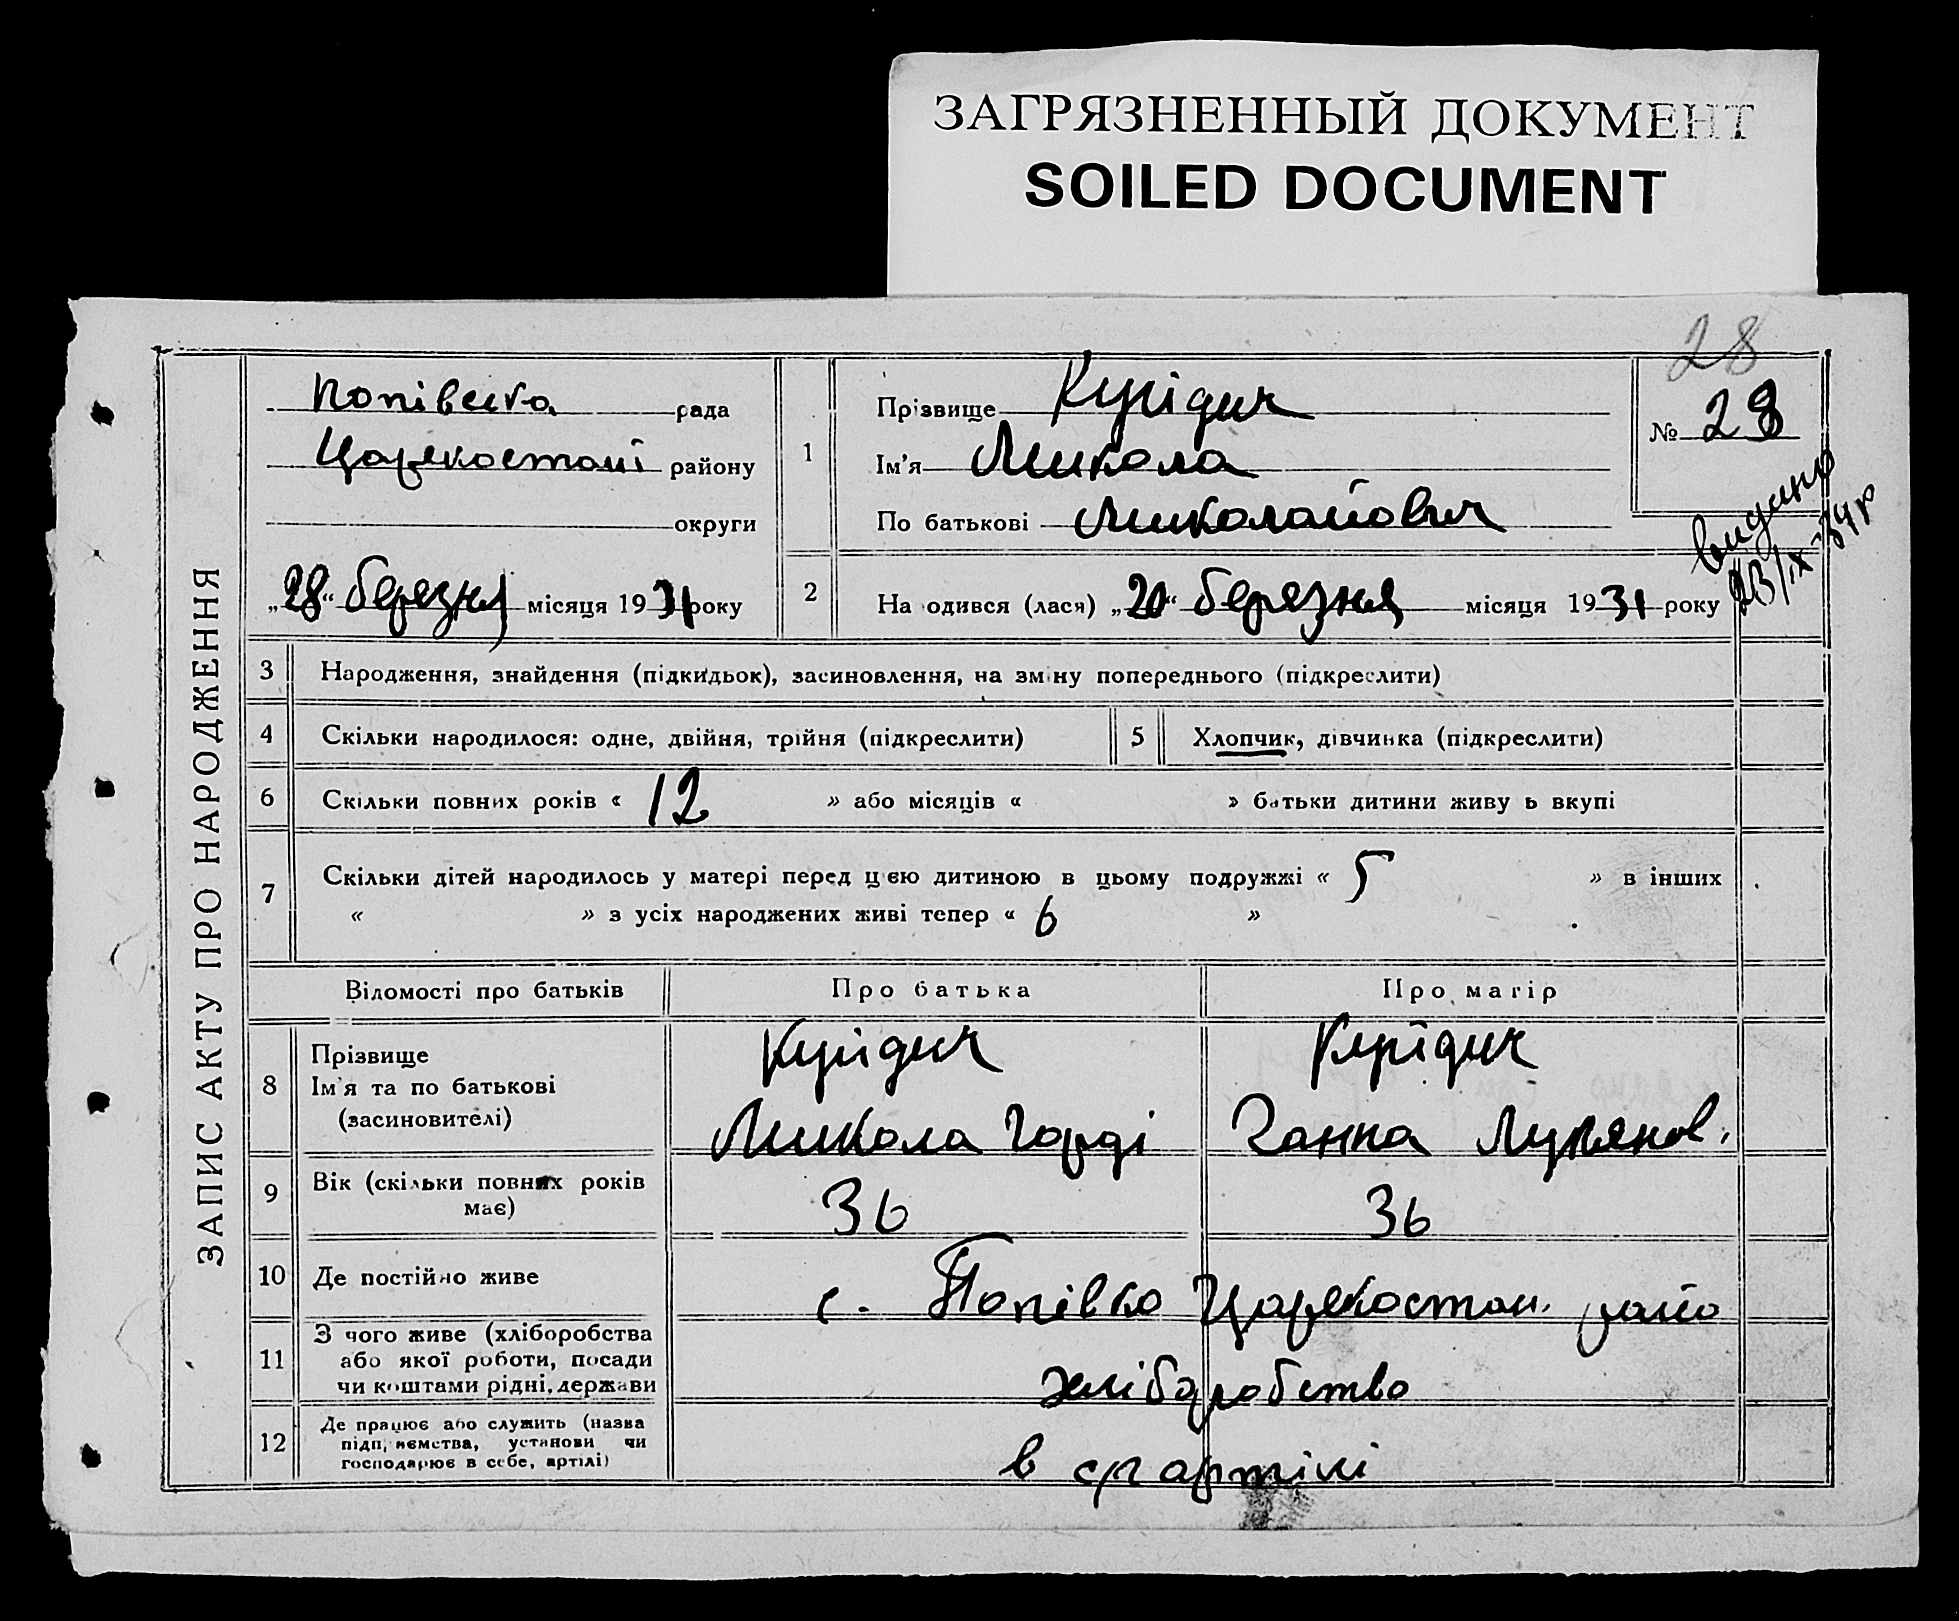 ЗАГРЯЗНЕННЫЙ ДОКУМЕНТ
SOILED DOCUMENT
28
ЗАПИС АКТУ ПРО НАРОДЖЕННЯ
Попівська рада
району
округи
„28“ березня місяця 1931 року
1
Прізвище
Ім'я Микола
По батькові Миколайович
№ 28
видано
2
На одився (лася) „20“ березня місяця 1931 року
3 Народження, знайдення (підкидьок), засиновлення, на зміну попереднього (підкреслити)
4 Скільки народилося: одне, двійня, трійня (підкреслити)
5 Хлопчик, дівчинка (підкреслити)
6 Скільки повних років « 12 » або місяців « » батьки дитини живу ь вкупі
7 Скільки дітей народилось у матері перед цією дитиною в цьому подружжі « 5 » в інших
« » з усіх народжених живі тепер « 6 »
Відомості про батьків Про батька Про матір
8 Прізвище
Ім'я та по батькові
(засиновителі)
Микола Горді Ганна
9 Вік (скільки повних років
має)
36 36
10 Де постійно живе
с. Попівко
11 З чого живе (хліборобства
або якої роботи, посади
чи коштами рідні, держави
хліборобство
12 Де працює або служить (назва
підприємства, установи чи
господарює в себе, артілі)
в с/г артілі